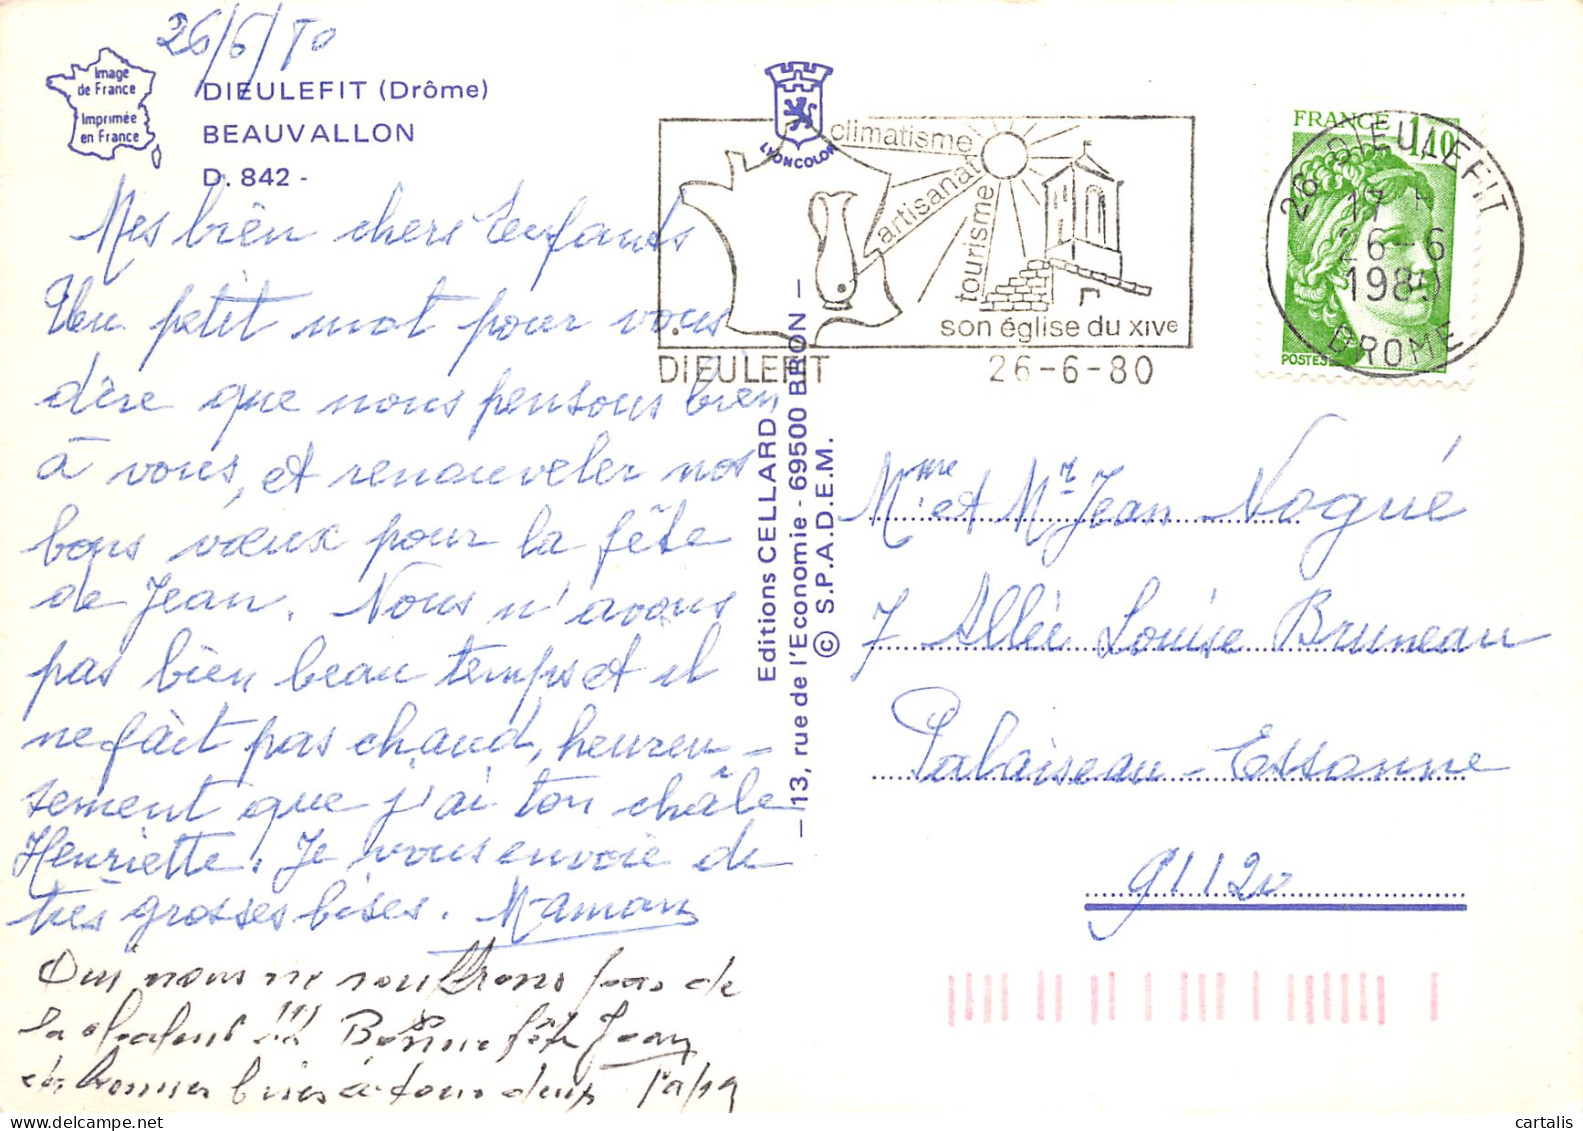 26/6/80
Image
de France
Imprimée
en France
DIEULEFIT (Drôme)
BEAUVALLON
D. 842 -
Mes bien chers Enfants
Un petit mot pour vous
dire que nous pensons bien
à vous, et renouveler nos
bons vœux pour la fête
de Jean. Nous n'avons
pas bien beau temps et il
ne fait pas chaud, heureu-
sement que j'ai ton châle
Henriette. Je vous envoie de
très grosses bises. Maman
Oui nous ne souffrons pas de
la chaleur !!! Bonne fête Jean
et bonnes bises à tous deux Papa
LYONCOLOR
climatisme
artisanat
tourisme
son église du XIVe
DIEULEFIT
26-6-80
Editions CELLARD
— 13, rue de l'Economie - 69500 BRON —
© S.P.A.D.E.M.
FRANCE
1,10
POSTES
26 DIEULEFIT
17 H
26-6
1980
DROME
Mme et Mr Jean Nogué
7 Allée Louise Bruneau
Palaiseau - Essonne
91120
cartalis